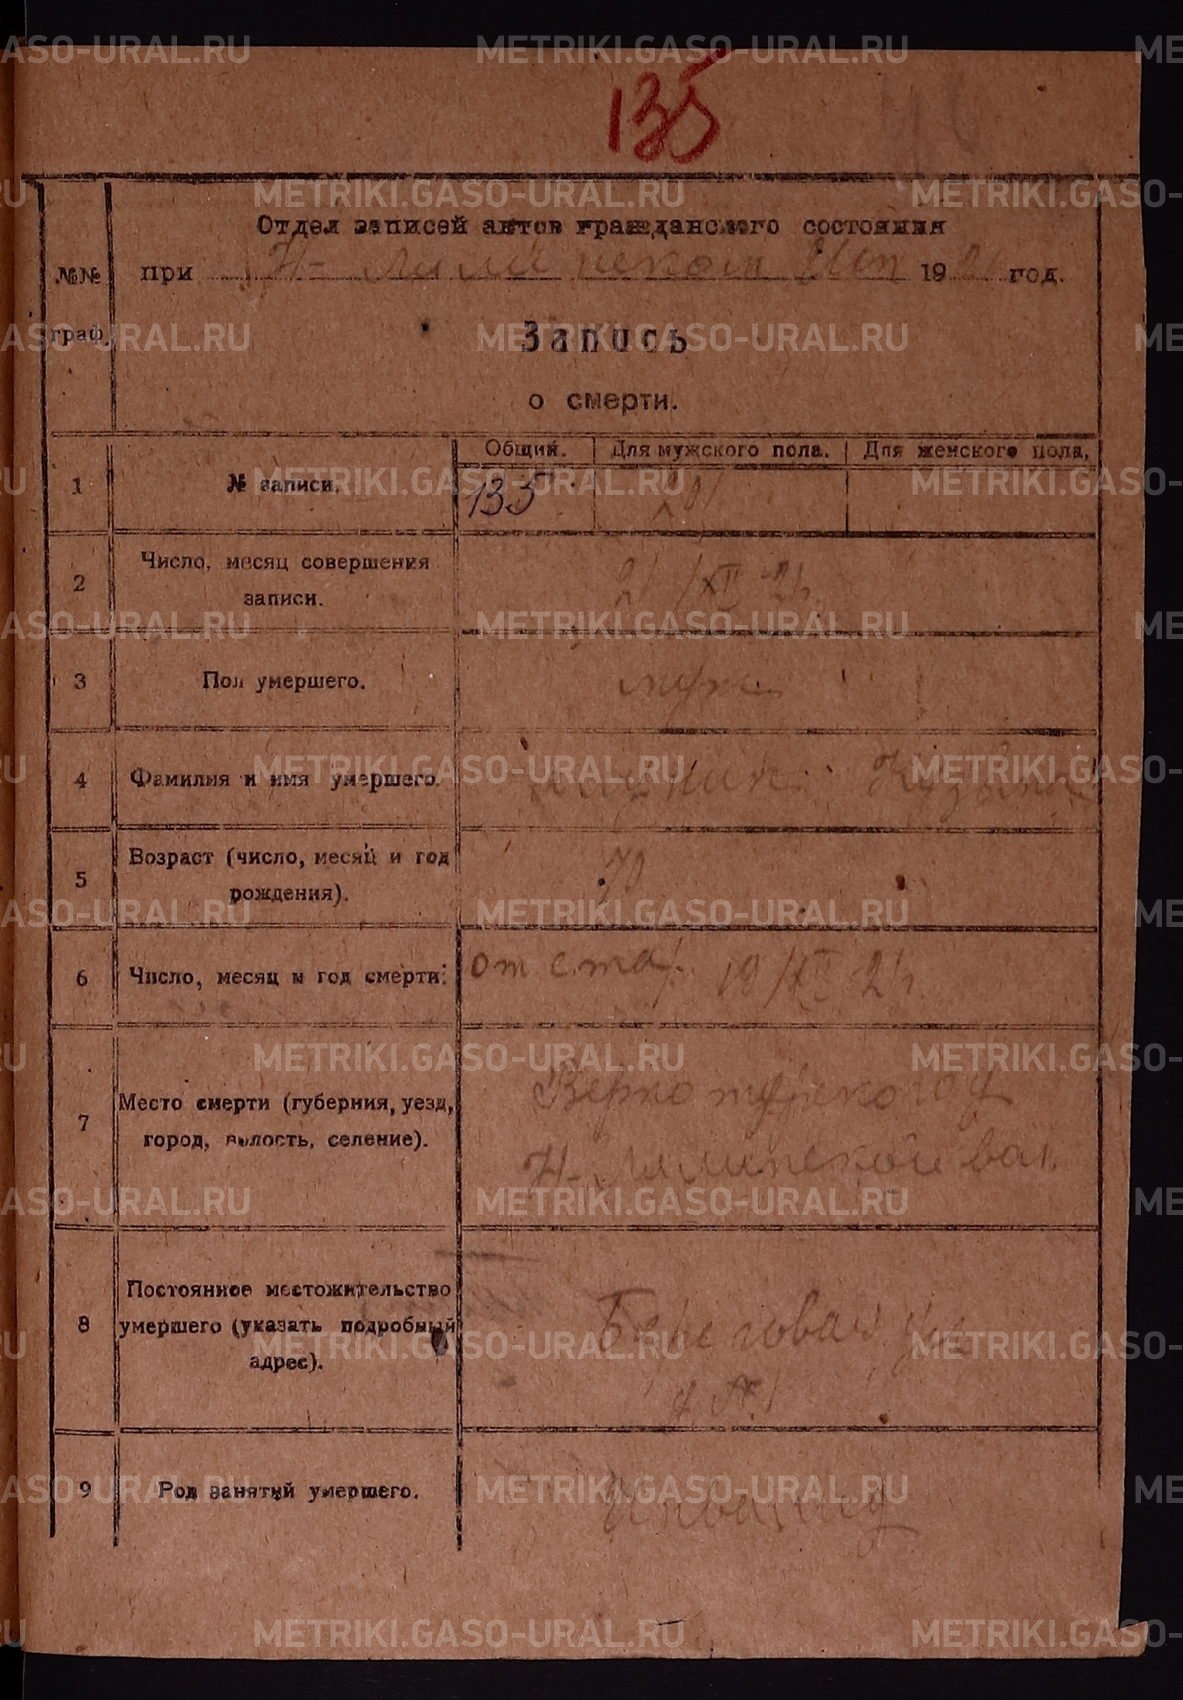 135
Отдел записей актов гражданского состояния
№№ граф.
при Н-Лялинском Исп 1921 год.
Запись
о смерти.
Общий. Для мужского пола. Для женского пола.
1 № записи. 135
2 Число, месяц совершения записи. 21/XII-21
3 Пол умершего. муж
4 Фамилия и имя умершего. Кузьма
5 Возраст (число, месяц и год рождения). 70
6 Число, месяц и год смерти. от стар. 19/XI 21
7 Место смерти (губерния, уезд, город, волость, селение). Верхотурского у
Н-Лялинской вол.
8 Постоянное местожительство умершего (указать подробный адрес). Береговая ул
д. №1
9 Род занятий умершего. Инвалид
METRIKI.GASO-URAL.RU